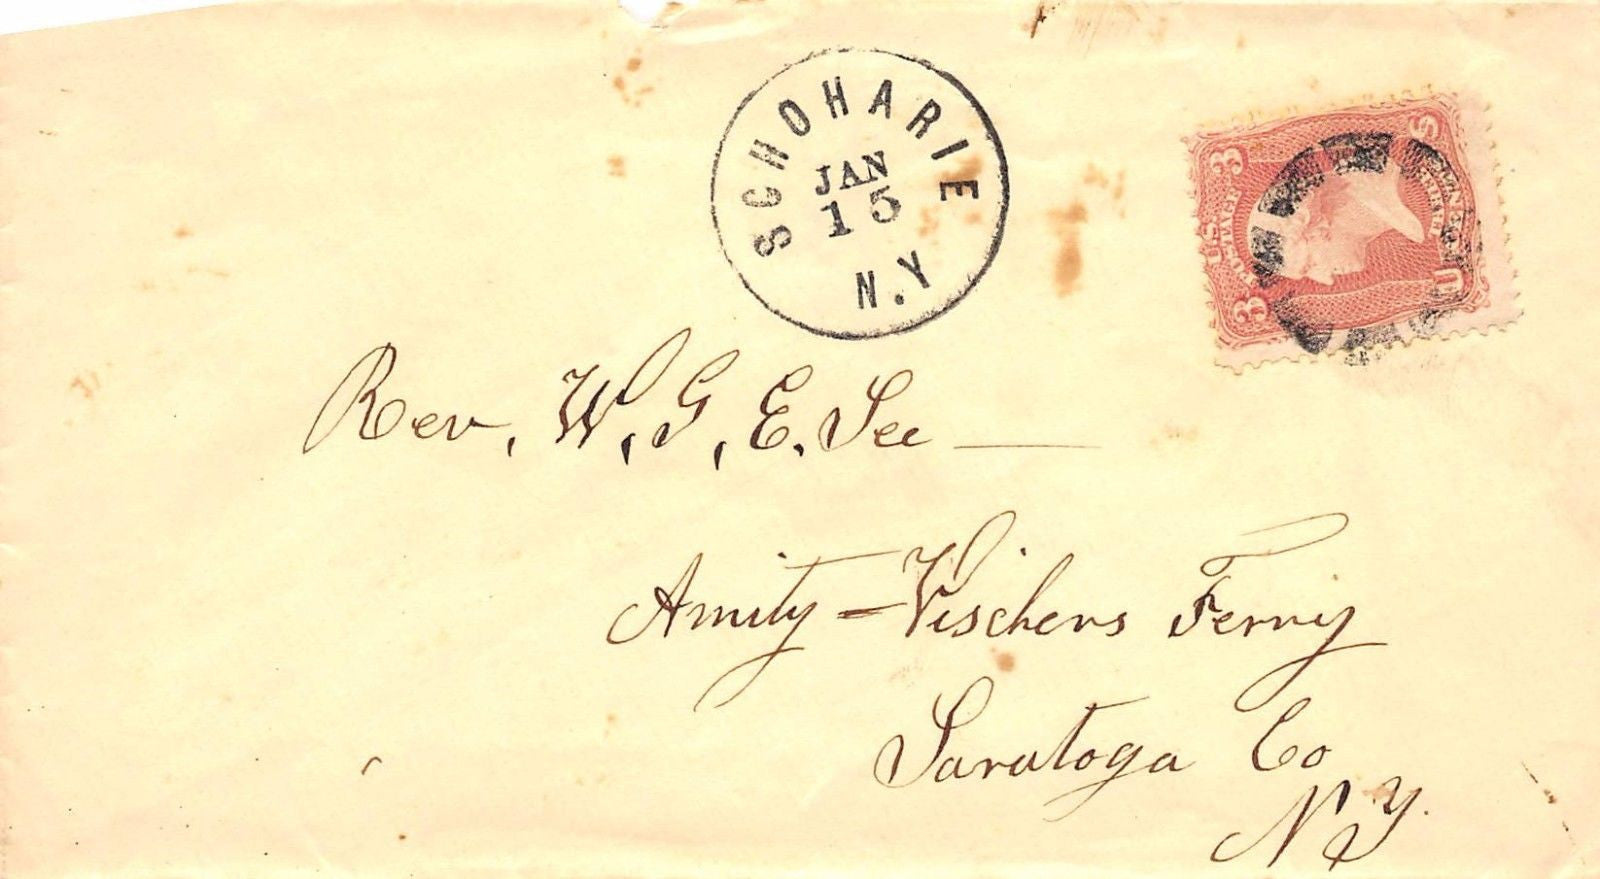 SCHOHARIE
JAN
15
N.Y
U.S. POSTAGE
3
3
U S
Rev. W. G. E. See
Amity - Vischers Ferry
Saratoga Co
N. Y.